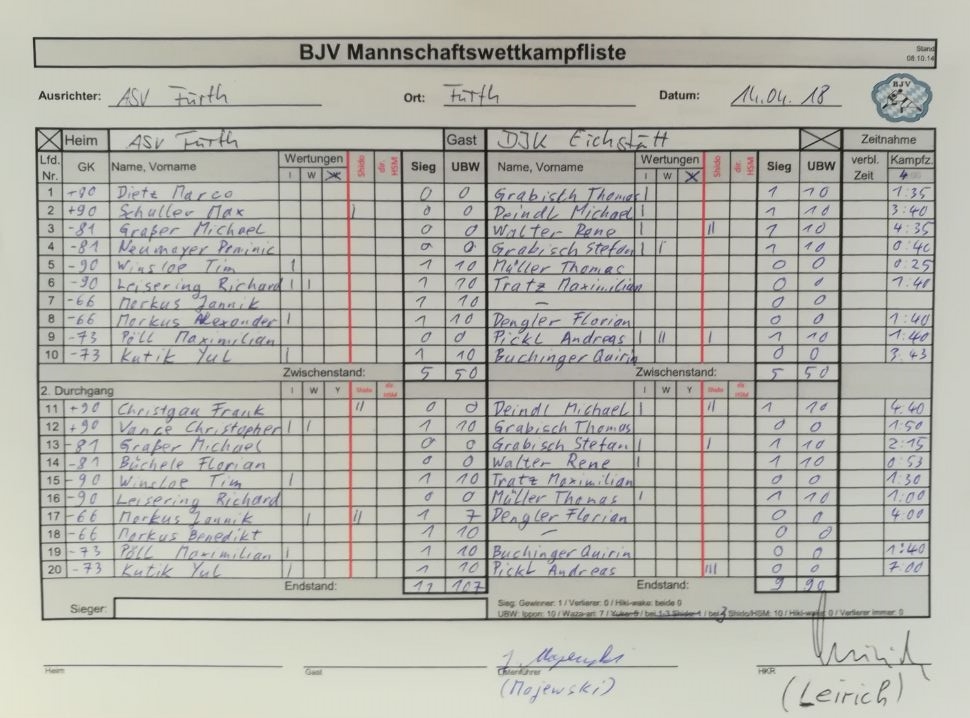 BJV Mannschaftswettkampfliste
Stand 08.10.14
Ausrichter: ASV Fürth Ort: Fürth Datum: 14.04.18
BJV
Heim ASV Fürth Gast DJK Eichstätt Zeitnahme
Lfd. Nr. GK Name, Vorname Wertungen I W Shido dir. HSM Sieg UBW Name, Vorname Wertungen I W Shido dir. HSM Sieg UBW verbl. Zeit Kampfz. 4
1 +90 Dietz Marco 0 0 Grabisch Thomas I 1 10 1:35
2 +90 Schuller Max I 0 0 Deindl Michael I 1 10 3:40
3 -81 Graßer Michael 0 0 Walter Rene I II 1 10 4:35
4 -81 Neumayer Dominic 0 0 Grabisch Stefan I I 1 10 0:40
5 -90 Winsloe Tim I 1 10 Müller Thomas 0 0 0:25
6 -90 Leisering Richard I I 1 10 Tratz Maximilian 0 0 1:40
7 -66 Morkus Jannik 1 10 — 0 0
8 -66 Morkus Alexander I 1 10 Dengler Florian 0 0 1:40
9 -73 Pöll Maximilian 0 0 Pickl Andreas I II I 1 10 1:40
10 -73 Kutik Yul I 1 10 Buchinger Quirin 0 0 3:43
Zwischenstand: 5 50 Zwischenstand: 5 50
2. Durchgang I W Y Shido dir. HSM I W Y Shido dir. HSM
11 +90 Christgau Frank II 0 0 Deindl Michael I II 1 10 4:40
12 +90 Vance Christopher I I 1 10 Grabisch Thomas 0 0 1:50
13 -81 Graßer Michael 0 0 Grabisch Stefan I I 1 10 2:15
14 -81 Büchele Florian 0 0 Walter Rene I 1 10 0:53
15 -90 Winsloe Tim I 1 10 Tratz Maximilian 0 0 1:30
16 -90 Leisering Richard 0 0 Müller Thomas I 1 10 1:00
17 -66 Morkus Jannik I II 1 7 Dengler Florian 0 0 4:00
18 -66 Morkus Benedikt 1 10 — 0 0
19 -73 Pöll Maximilian I 1 10 Buchinger Quirin 0 0 1:40
20 -73 Kutik Yul I 1 10 Pickl Andreas III 0 0 7:00
Endstand: 11 107 Endstand: 9 90
Sieger:
Sieg: Gewinner: 1 / Verlierer: 0 / Hiki-wake: beide 0
UBW: Ippon: 10 / Waza-ari: 7 / Yuko: 5 / bei 1-3 Shido: 1 / bei 3 Shido/HSM: 10 / Hiki-wake: 0 / Verlierer immer: 0
Heim Gast Listenführer HKR
(Majewski) (Leirich)